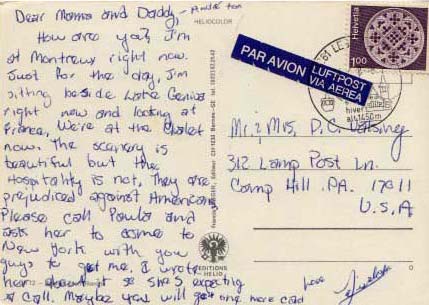 Dear Momma and Daddy, -
How are you? I'm
at Montreux right now.
Just for the day, I'm
sitting beside Lake Geneva
right now and looking at
France, We're at the Chalet
now. The scenery is
beautiful but the
Hospitality is not, They are
prejudiced against Americans
Please call Paula and
ask her to come to
New York with you
guys to get me. I wrote
her about it so she's expecting
a call. Maybe you will get one more card
Love
HELIOCOLOR
EDITIONS
HELIO
PAR AVION LUFTPOST
VIA AEREA
Helvetia
100
hiver
alt. 1450m
Mr. & Mrs. D. C.
312 Lamp Post Ln.
Camp Hill, PA. 17011
U.S.A